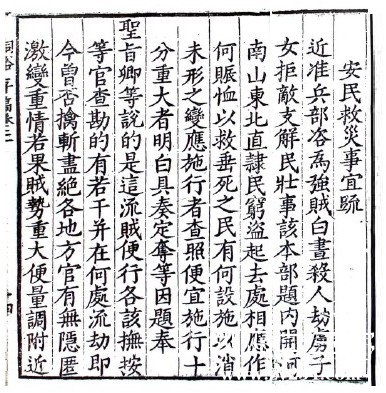 安民救災事宜疏
近准兵部咨為強賊白晝殺人劫虜子
女拒敵支解民壯事該本部題內開河
南山東北直隸民窮盜起去處相應作
何賑恤以救垂死之民有何設施以消
未形之變應施行者查照便宜施行十
分重大者明白具奏定奪等因題奉
聖旨卿等說的是這流賊便行各該撫按
等官查勘的有若干并在何處流劫即
今曾否擒斬盡絕各地方官有無隱匿
激變重情若果賊勢重大便量調附近